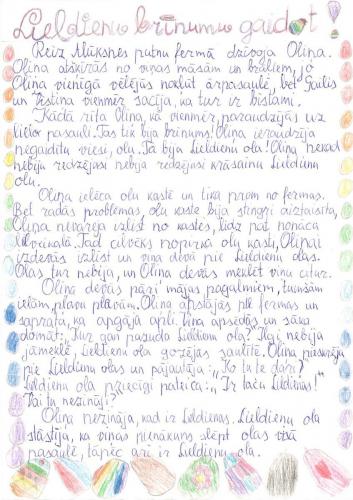 Lieldienu brīnumu gaidot!
Reiz Alūksnes putnu fermā dzīvoja Oliņa.
Oliņa atšķīrās no viņas māsām un brāļiem, jo
Oliņa vienīgā vēlējās nokļūt ārpasaulē, bet Gailis
un Vistiņa vienmēr sacīja, ka tur ir bīstami.
Kādā rītā Oliņa, kā vienmēr, paraudzījās uz
lielo pasauli. Tas tik bija brīnums! Oliņa ieraudzīja
negaidītu viesi, olu. Tā bija Lieldienu ola! Oliņa nekad
nebija redzējusi nebija redzējusi krāsainu Lieldienu
olu.
Oliņa ielēca olu kastē un tika prom no fermas.
Bet radās problēmas, olu kaste bija stingri aiztaisīta,
Oliņa nevarēja izlīst no kastes, līdz pat nonāca
lielveikalā. Tad cilvēks nopirka olu kasti, Oliņai
izdevās izlīst un viņa devās pie Lieldienu olas.
Olas tur nebija, un Oliņa devās meklēt viņu citur.
Oliņa devās pāri mājas pagalmiem, tumšām
ielām, pļavu pļavām. Oliņa apstājās pie fermas un
saprata, ka apgāja apli. Viņa apsēdās un sāka
domāt: "Tur gan pasuda Lieldienu ola? Ilgi nebija
jāmeklē, Lieldienu ola gozējās saulītē. Oliņa pieskrēja
pie Lieldienu olas un pajautāja: "Ko tu te dari?"
Lieldienu ola priecīgi pateica: "Ir taču Lieldienas!
Vai tu nezināji?
Oliņa nezināja, kad ir Lieldienas. Lieldienu ola
stāstīja, ka viņas pienākums slēpt olas visā
pasaulē, tāpēc arī ir Lieldienu ola.